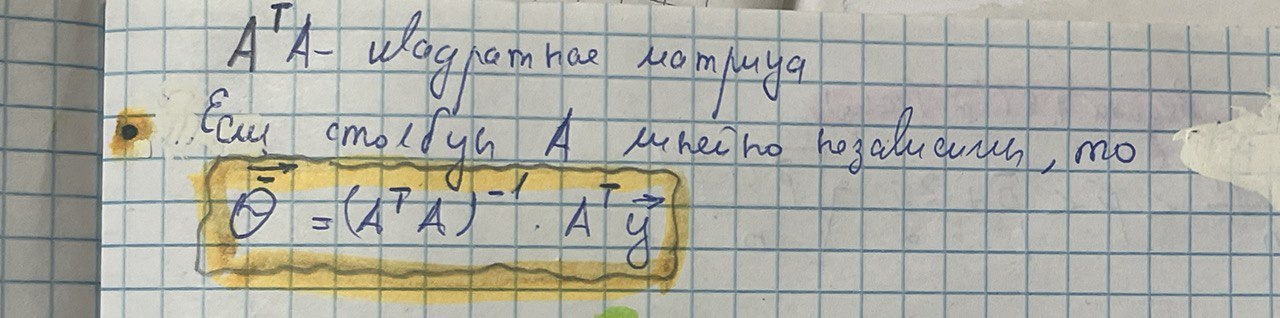 AᵀA - квадратная матрица
Если столбцы A линейно независимы, то
θ̄⃗ = (AᵀA)⁻¹ · Aᵀy⃗